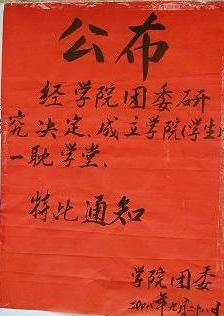 公布
经学院团委研
究决定、成立学院(学生
一耽学堂.
特此通知
学院团委
2008年九月二十八日